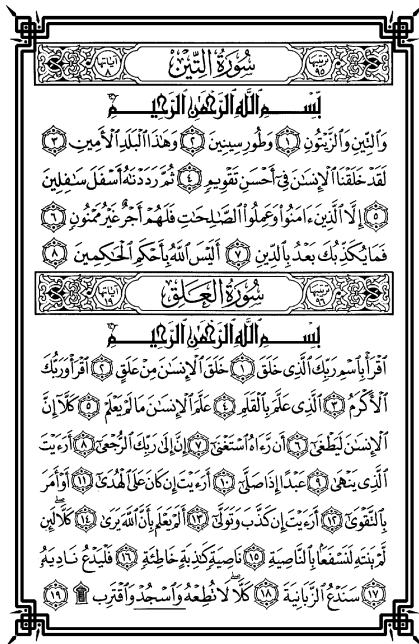 ترتيبها ٩٥ سُورَةُ التِّينِ آياتها ٨
بِسْمِ اللَّهِ الرَّحْمَٰنِ الرَّحِيمِ
وَالتِّينِ وَالزَّيْتُونِ ١ وَطُورِ سِينِينَ ٢ وَهَٰذَا الْبَلَدِ الْأَمِينِ ٣
لَقَدْ خَلَقْنَا الْإِنسَٰنَ فِي أَحْسَنِ تَقْوِيمٍ ٤ ثُمَّ رَدَدْنَٰهُ أَسْفَلَ سَٰفِلِينَ
٥ إِلَّا الَّذِينَ ءَامَنُوا وَعَمِلُوا الصَّٰلِحَٰتِ فَلَهُمْ أَجْرٌ غَيْرُ مَمْنُونٍ ٦
فَمَا يُكَذِّبُكَ بَعْدُ بِالدِّينِ ٧ أَلَيْسَ اللَّهُ بِأَحْكَمِ الْحَٰكِمِينَ ٨
ترتيبها ٩٦ سُورَةُ الْعَلَقِ آياتها ١٩
بِسْمِ اللَّهِ الرَّحْمَٰنِ الرَّحِيمِ
اقْرَأْ بِاسْمِ رَبِّكَ الَّذِي خَلَقَ ١ خَلَقَ الْإِنسَٰنَ مِنْ عَلَقٍ ٢ اقْرَأْ وَرَبُّكَ
الْأَكْرَمُ ٣ الَّذِي عَلَّمَ بِالْقَلَمِ ٤ عَلَّمَ الْإِنسَٰنَ مَا لَمْ يَعْلَمْ ٥ كَلَّا إِنَّ
الْإِنسَٰنَ لَيَطْغَىٰ ٦ أَن رَّءَاهُ اسْتَغْنَىٰ ٧ إِنَّ إِلَىٰ رَبِّكَ الرُّجْعَىٰ ٨ أَرَءَيْتَ
الَّذِي يَنْهَىٰ ٩ عَبْدًا إِذَا صَلَّىٰ ١٠ أَرَءَيْتَ إِن كَانَ عَلَى الْهُدَىٰ ١١ أَوْ أَمَرَ
بِالتَّقْوَىٰ ١٢ أَرَءَيْتَ إِن كَذَّبَ وَتَوَلَّىٰ ١٣ أَلَمْ يَعْلَم بِأَنَّ اللَّهَ يَرَىٰ ١٤ كَلَّا لَئِن
لَّمْ يَنتَهِ لَنَسْفَعًا بِالنَّاصِيَةِ ١٥ نَاصِيَةٍ كَٰذِبَةٍ خَاطِئَةٍ ١٦ فَلْيَدْعُ نَادِيَهُ
١٧ سَنَدْعُ الزَّبَانِيَةَ ١٨ كَلَّا لَا تُطِعْهُ وَاسْجُدْ وَاقْتَرِب ۩ ١٩